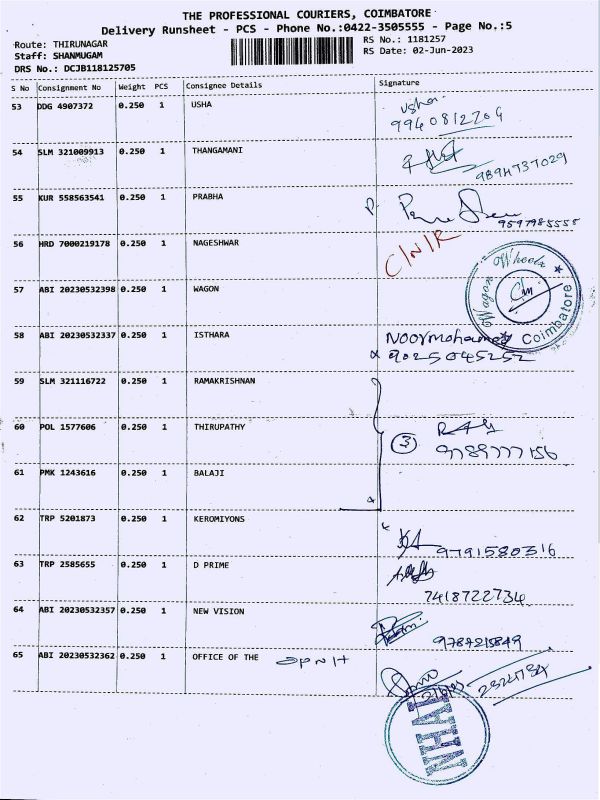 THE PROFESSIONAL COURIERS, COIMBATORE
Delivery Runsheet - PCS - Phone No.:0422-3505555 - Page No.:5
Route: THIRUNAGAR
RS No.: 1181257
Staff: SHANMUGAM
RS Date: 02-Jun-2023
DRS No.: DCJB118125705
S No Consignment No Weight PCS Consignee Details Signature
53 DDG 4907372 0.250 1 USHA
usha
9940812204
54 SLM 321009913 0.250 1 THANGAMANI
9894737029
55 KUR 558563541 0.250 1 PRABHA
9597985558
56 HRD 7000219178 0.250 1 NAGESHWAR
C/N/R
57 ABI 20230532398 0.250 1 WAGON
Wagon Wheelz
Coimbatore
58 ABI 20230532337 0.250 1 ISTHARA
Noormohamed
9025045252
59 SLM 321116722 0.250 1 RAMAKRISHNAN
60 POL 1577606 0.250 1 THIRUPATHY
3
9789777156
61 PMK 1243616 0.250 1 BALAJI
62 TRP 5201873 0.250 1 KEROMIYONS
9791580316
63 TRP 2585655 0.250 1 D PRIME
7418722734
64 ABI 20230532357 0.250 1 NEW VISION
9787215849
65 ABI 20230532362 0.250 1 OFFICE OF THE
2324734
NHAI